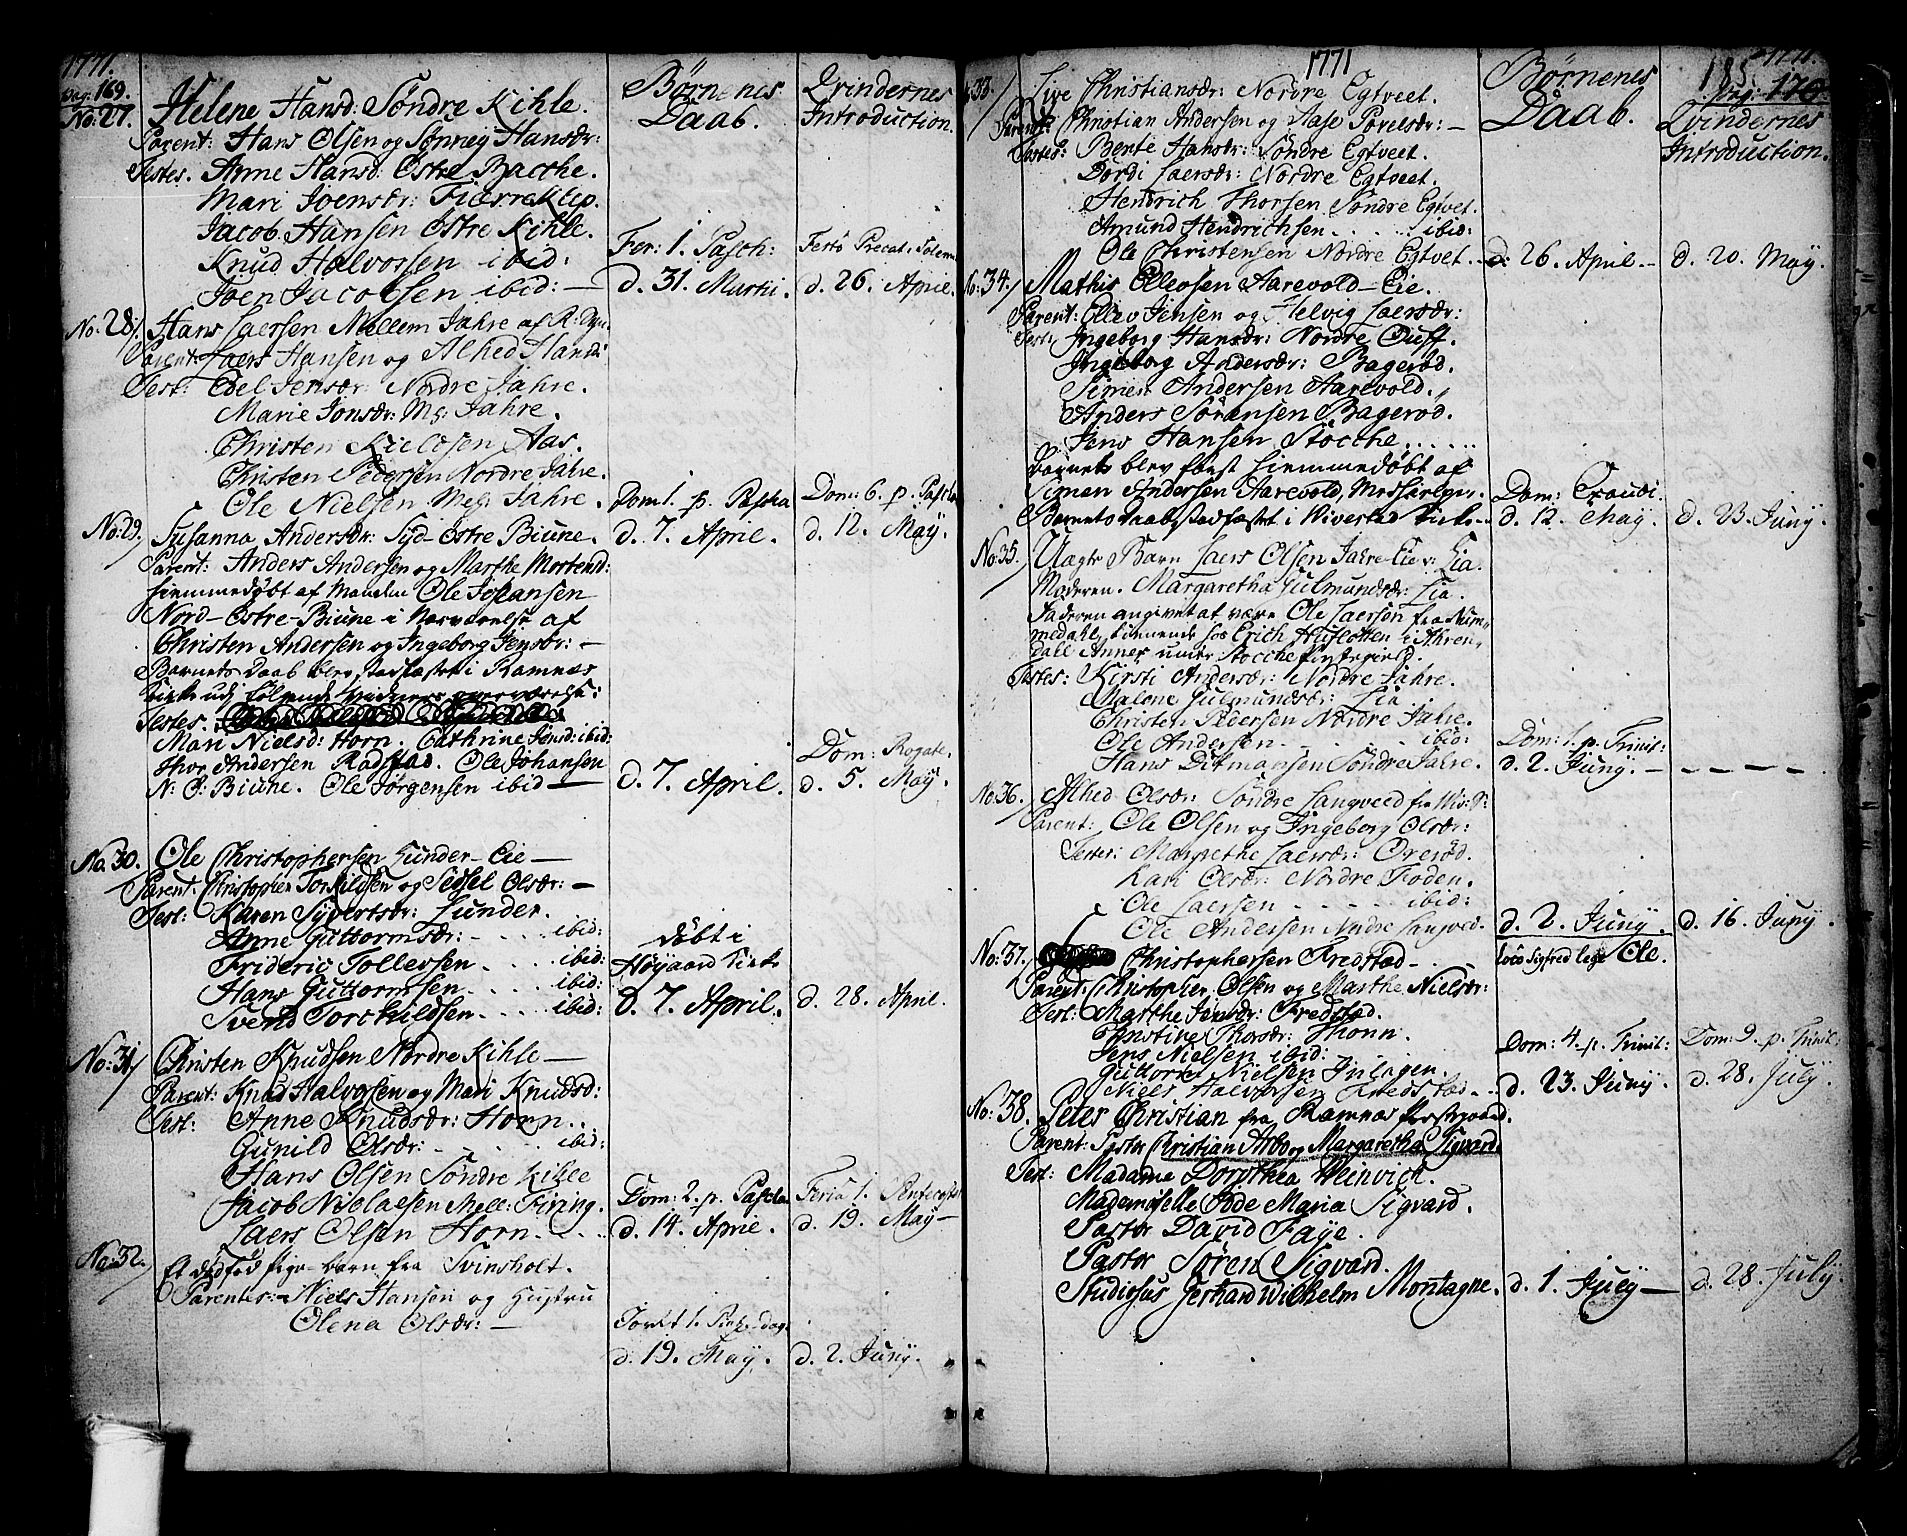 1771.
Pag: 169.
Børnenes
Daab.
Qvindernes
Introduction.
No: 27. Helene Hansd: Søndre Kihle
Parent: Hans Olsen og Sønneg Hansdr:
Testes. Anne Hansd: Østre Bacche.
Mari Joensdr: Fierreklep.
Jacob Hansen Østre Kihle.
Knud Halvorsen ibid:
Joen Jacobsen ibid: —
Fer: 1. Pasch:
d. 31. Martii.
Festo Precat: Solenn
d. 26. April.
No: 28. Hans Laersen Mellem Jahre af R:
Parent: Laers Hansen og Alhed Hansd:
Test: Edel Jensdr: Nordre Jahre.
Marie Jonsdr: M: Jahre.
Christen Kieldsen Aas.
Christen Pedersen Nordre Jahre.
Ole Nielsen Mel: Jahre.
Dom 1. p. Pascha
d. 7. April.
Dom: 6. p. Pasch
d. 12. May.
No: 29. Susanna Andersdr: Syd-Østre Biune.
Parent: Anders Andersen og Marthe Mortensd:
hiemmedøbt af Manden Ole Johansen
Nord-Østre-Biune i Nærværelse af
Christen Andersen og Ingeborg Jensdr: —
Barnets Daab blev stadfæstet i Ramnæs
Kirke udj følgende Faddernes overværelse:
Testes.
Mari Nielsd: Horn. Cathrine Jensd: ibid:
Thor Andersen Radstad. Ole Johansen
N: Ø: Biune. Ole Jørgensen ibid —
d. 7. April.
Dom: Rogate.
d. 5. May.
No. 30. Ole Christophersen Lunder-Eie —
Parent: Christopher Torkildsen og Sessel Olsdr: —
Test: Karen Syvertsdr: Lunder.
Anne Guttormsdr: - . . . ibid:
Frideric Tollersen . . . ibid:
Hans Guttormsen . . . ibid:
Svend Torchildsen . . . ibid:
døbt i
Høyaard Kirke
d. 7. April.
d. 28. April.
No: 31 Christen Knudsen Nordre Kihle —
Parent: Knud Halvorsen og Mari Knudsd:
Test: Anne Knudsdr: Horn . . .
Gunild Olsdr: - . . . ibid:
Hans Olsen Søndre Kihle
Jacob Nicolaesen Mell: Firing.
Laers Olsen Horn. . .
Dom: 2. p. Pascha
d. 14. April.
Feria 1. Pentecost
d. 19. May —
No: 32. Et dødfød pige-barn fra Svinsholt.
Parentes: Niels Hansen og Hustru
Olena Olsdr: —
Jordet 1. Pintzedag.
d. 19. May.
d. 2. Juny.
1771
1771.
185.
pag: 170.
Børnenes
Daab.
Qvindernes
Introduction.
33. Live Christiansdr: Nordre Egtveet.
Parent: Christian Andersen og Aase Povelsdr: —
Testes: Bente Hansdr: Søndre Egtveet.
Dordi Laersdr: Nordre Egtveet.
Hendrich Thorsen Søndre Egtvet.
Amund Hendrichsen . . . . . ibid:
Ole Christensen Nordre Egtvet. —
d. 26. April. —
d. 20. May.
No: 34. Mathis Ellevsen Aarevold-Eie.
Parent: Ellev Jensen og Helvig Laersdr:
Test: Ingeborg Hansdr: Nordre Duff.
Ingeborg Andersdr: Bagerød.
Simen Andersen Aarevold.
Anders Sørensen Bagerød.
Jens Hansen Støcche. . . . . .
Barnets blev først hiemmedøbt af
Simen Andersen Aarevold, Medhielper.
Barnets daab stadfæstet i Wivestad Kirke. —
Dom: Exaudi.
d. 12. May.
d. 23. Juny.
No: 35. Uægte Barn Laers Olsen Jahre-Eie v: Lia.
Moderen. Margaretha Gulmundsdr: Lia.
Faderen angivet at være Ole Laersen fra Num-
medahl, tienende hos Erich Husflotten i Ahren-
dall Annex under Stocche Præstegield.
Testes: Kirsti Andersdr: Nordre Jahre.
Malene Gulmundsdr: Lia.
Christen Pedersen Nordre Jahre.
Ole Andersen . . . . . ibid:
Hans Ditmansen Søndre Jahre.
Dom: 1. p. Trinit:
d. 2. Juny. —
— — — —
No: 36. Alhed Olsdr: Søndre Langveed fra
Parent: Ole Olsen og Ingeborg Olsdr:
Tester: Margrethe Laersdr: Orerød.
Kari Olsdr: Nordre Foden.
Ole Laersen - - - - - ibid:
Ole Andersen Nordre Langved.
d. 2. Juny.
d. 16. Juny.
No: 37. Christophersen Fredstad —
loco Sigfred lege Ole.
Parent: Christopher Olsen og Marthe Nielsdr:
Test: Marthe Jensdr: Fredstad.
Christine Thorsdr: Thonn.
Jens Nielsen ibid:
Guttorm Nielsen Fulagen.
Niels Halvorsen Fredstad . . .
Dom: 4. p. Trinit:
d. 23. Juny.
Dom: 9. p. Trinit:
d. 28. July.
No: 38. Peter Christian fra Ramnæs Præstegaard.
Parent: Pastor Christian Arbo og Margaretha Sigvard.
Test: Madame Dorothea Weinvich.
Mademoiselle Bode Maria Sigvard.
Pastor David Faye.
Pastor Søren Sigvard.
Studiosus Gerhard Wilhelm Montagne.
d. 1. July —
d. 28. July.